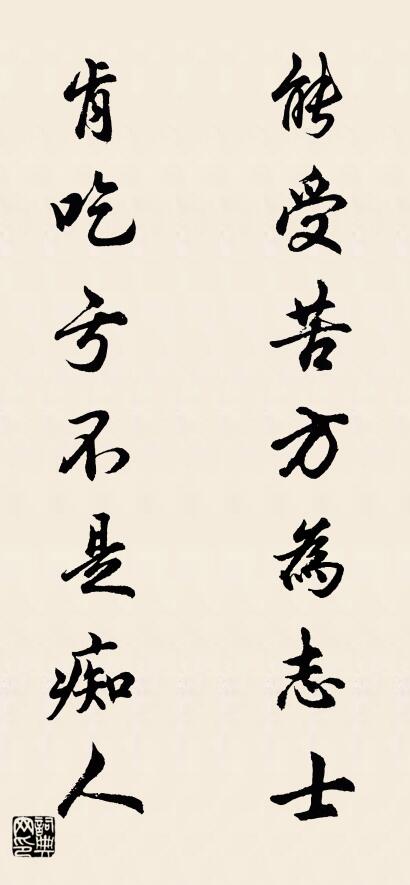 能受苦方為志士
肯吃亏不是痴人
詞典网印